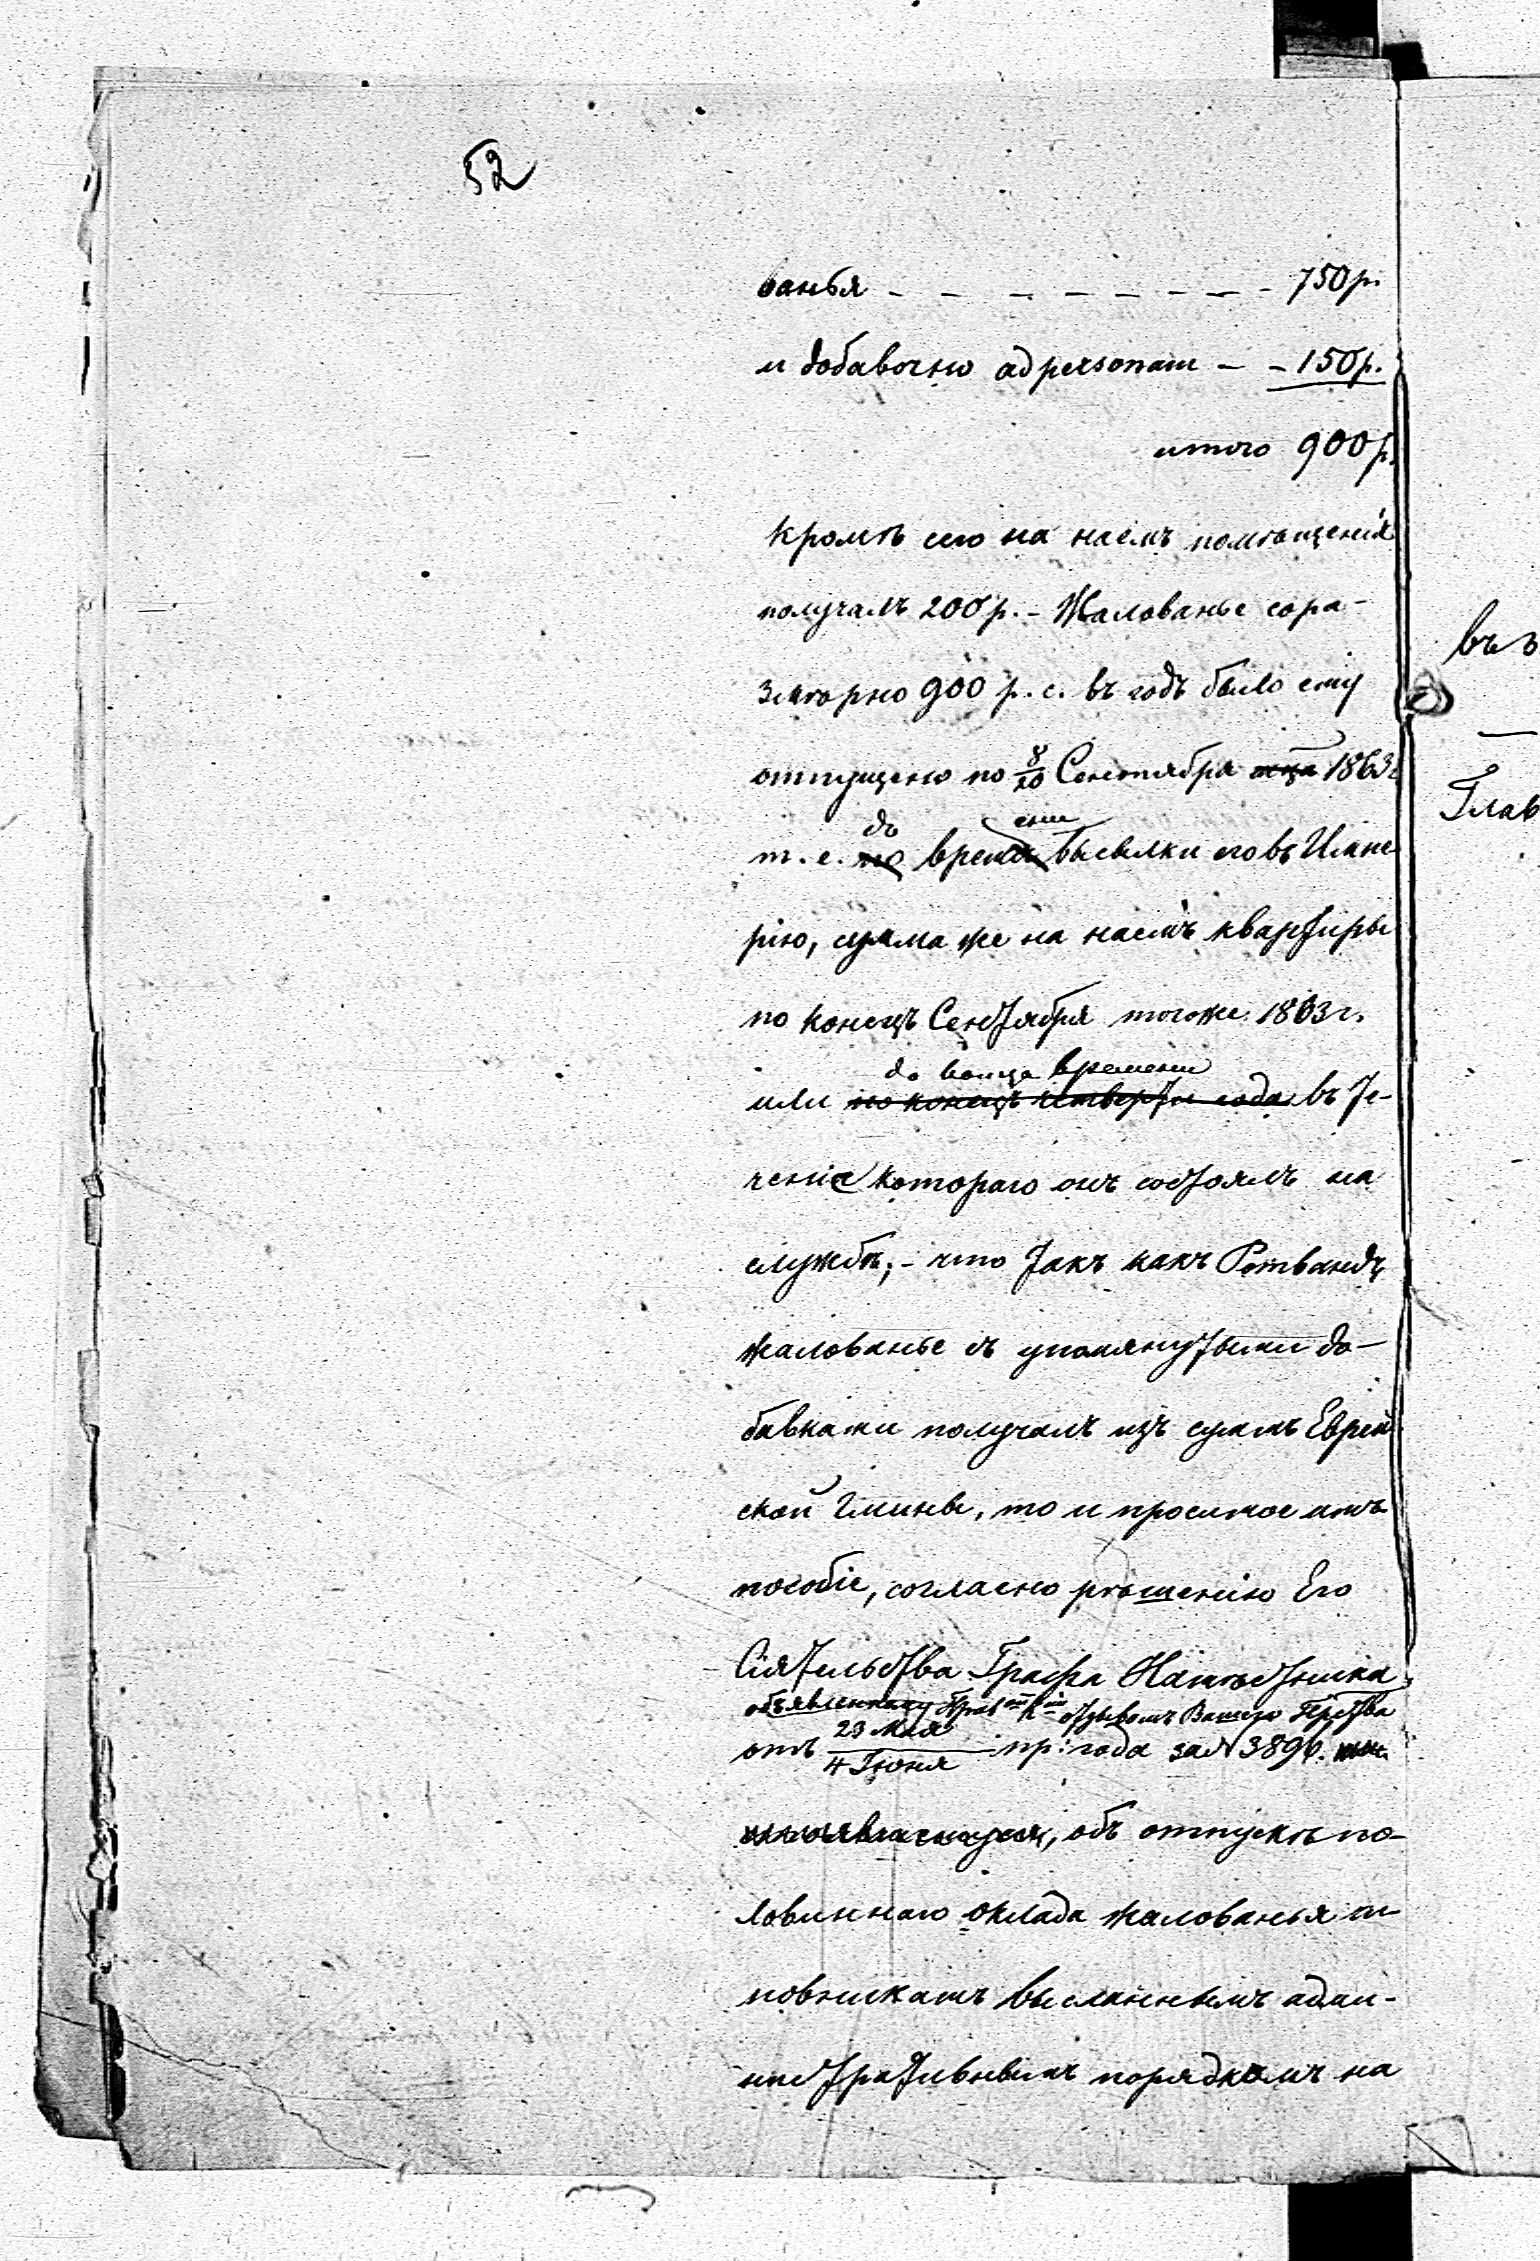 52
ванья - - - - - - - - 750 р.
и добавочно ad personam - - 150 р.
итого 900 р.
Кромѣ сего на наемъ помѣщенія
получалъ 200 р. - Жалованье сора-
змѣрно 900 р. с. въ годъ было ему
отпущено по 8/20 Сентября 1863 г.
до
т. е. времени высылки его въ Импе
рію, сумма же на наемъ квартиры
по конецъ Сентября тогоже 1863 г.
до конца времени
или по конецъ четверти года въ те-
ченіе котораго онъ состоялъ на
службѣ; - что такъ какъ Ротвандъ
жалованье съ упомянутыми до-
бавками получалъ изъ суммъ Еврей
ской Гмины, то и просимое имъ
пособіе, согласно рѣшенію Его
Сіятельства Графа Намѣстника,
объявленному отзывомъ Вашего
отъ 23 Мая / 4 Іюня пр: года за № 3896.
объ отпускѣ по-
ловиннаго оклада жалованья чи-
новникамъ высланнымъ адми-
нистративнымъ порядкомъ на
въ
Глав